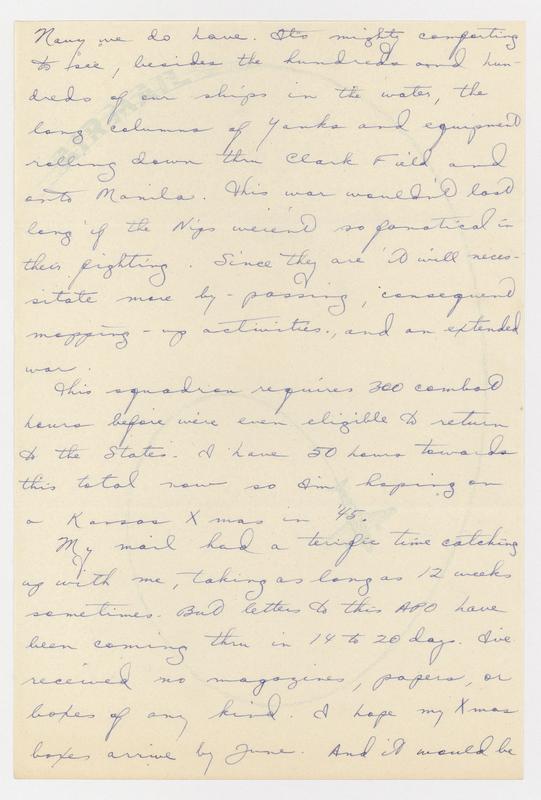 Navy we do have. Its mighty comforting
to see, besides the hundreds and hun-
dreds of our ships in the water, the
long columns of Yanks and equipment
rolling down thru Clark Field and
onto Manila. This war wouldn't last
long if the Nips weren't so fanatical in
their fighting. Since they are it will neces-
sitate more by-passing, consequent
mopping-up activities, and an extended
war.
This squadron requires 300 combat
hours before were even eligible to return
to the States. I have 50 hours towards
this total now so Im hoping on
a Kansas Xmas in '45.
My mail had a terrific time catching
up with me, taking as long as 12 weeks
sometimes. But letters to this APO have
been coming thru in 14 to 20 days. I've
received no magazines, papers, or
boxes of any kind. I hope my Xmas
boxes arrive by June. And it would be
AIR MAIL